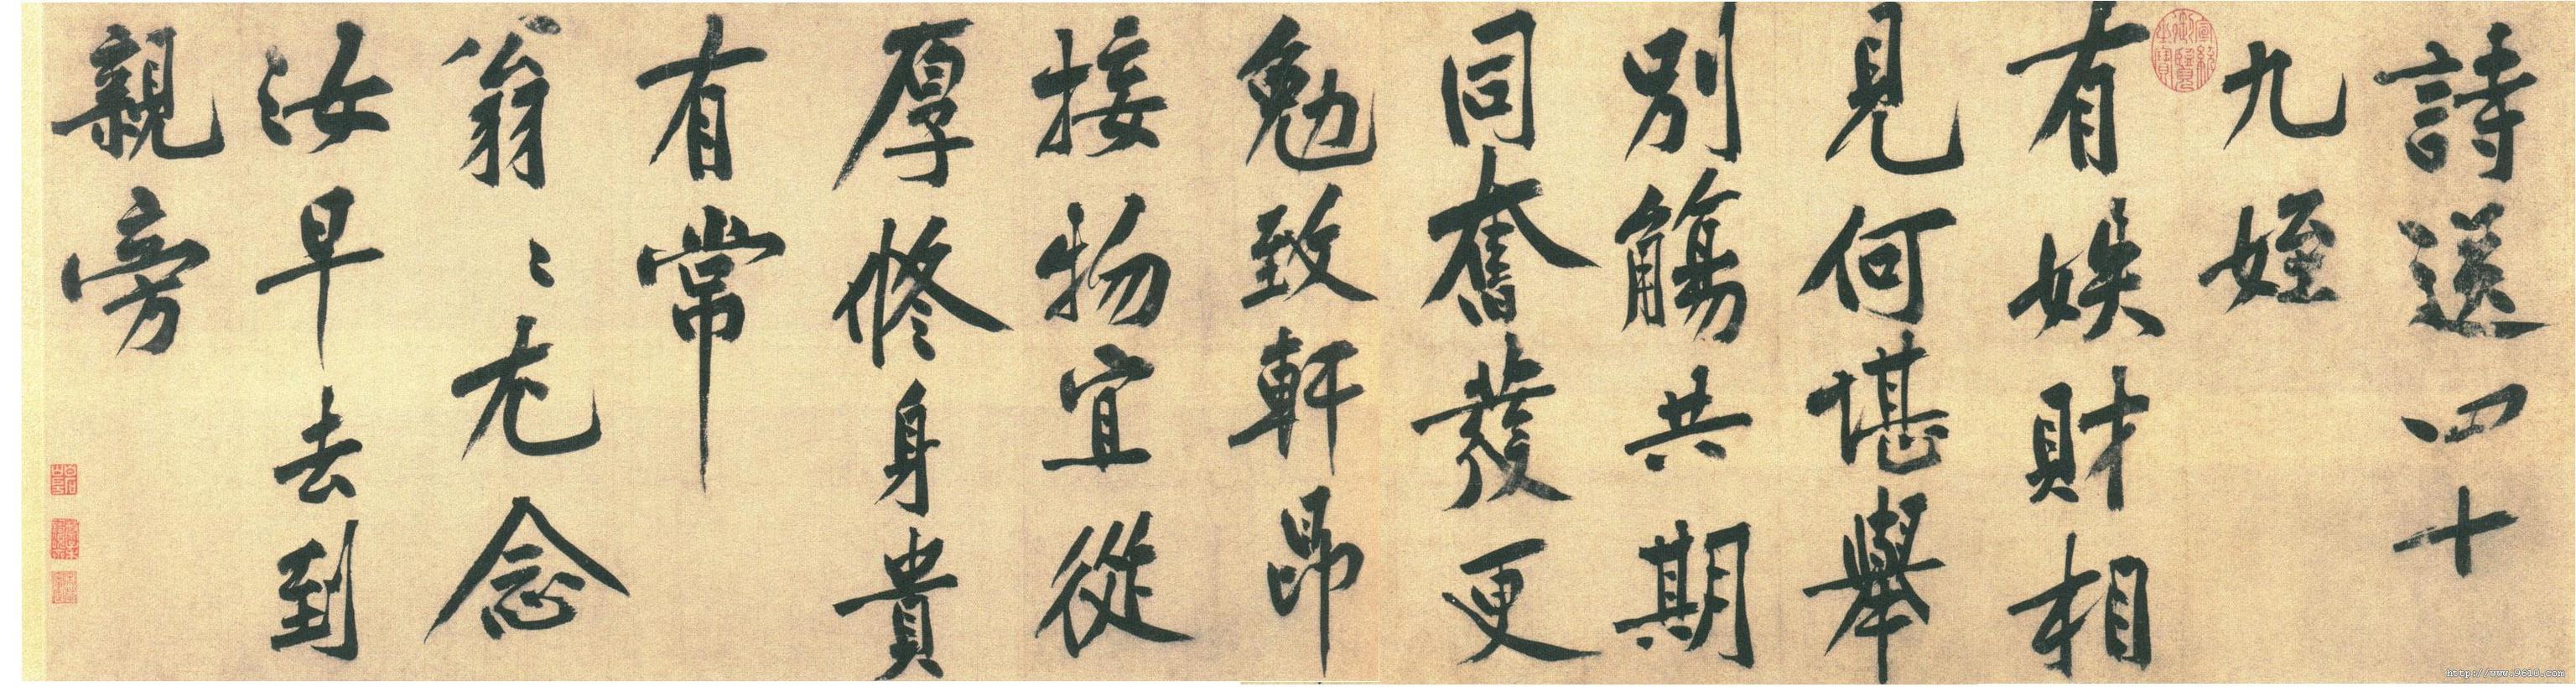 詩送四十
九姪
有娛財相
見何堪舉
別觴共期
同奮發更
勉致軒昂
接物宜從
厚修身貴
有常
翁〻尤念
汝早去到
親旁
宣統御覽之寶
http://www.9610.com